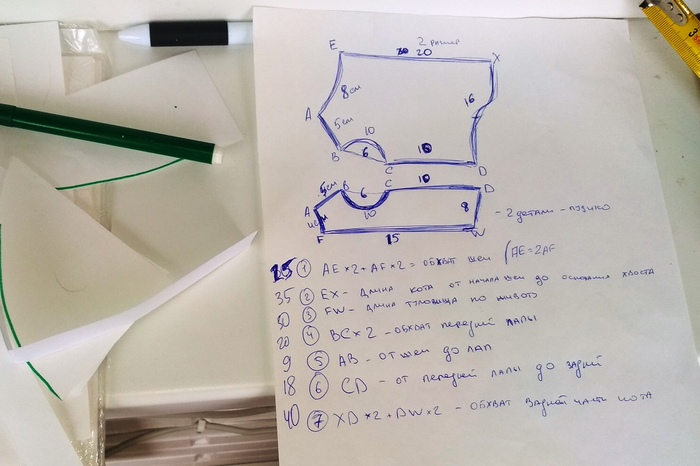 E
2 размер
20
X
8 см
16
A
5 см
10
B
6
10
C
D
5 см
B
6
C
10
D
A
4 см
10
8
- 2 детали - пузико
F
15
W
25 ① AE × 2 + AF × 2 = обхват шеи (AE = 2AF
35 ② EX - длина кота от начала шеи до основания хвоста
30 ③ FW - длина туловища по животу
20 ④ BC × 2 - обхват передней лапы
9 ⑤ AB - от шеи до лап
18 ⑥ CD - от передней лапы до задней
40 ⑦ XD × 2 + DW × 2 - обхват задней части кота